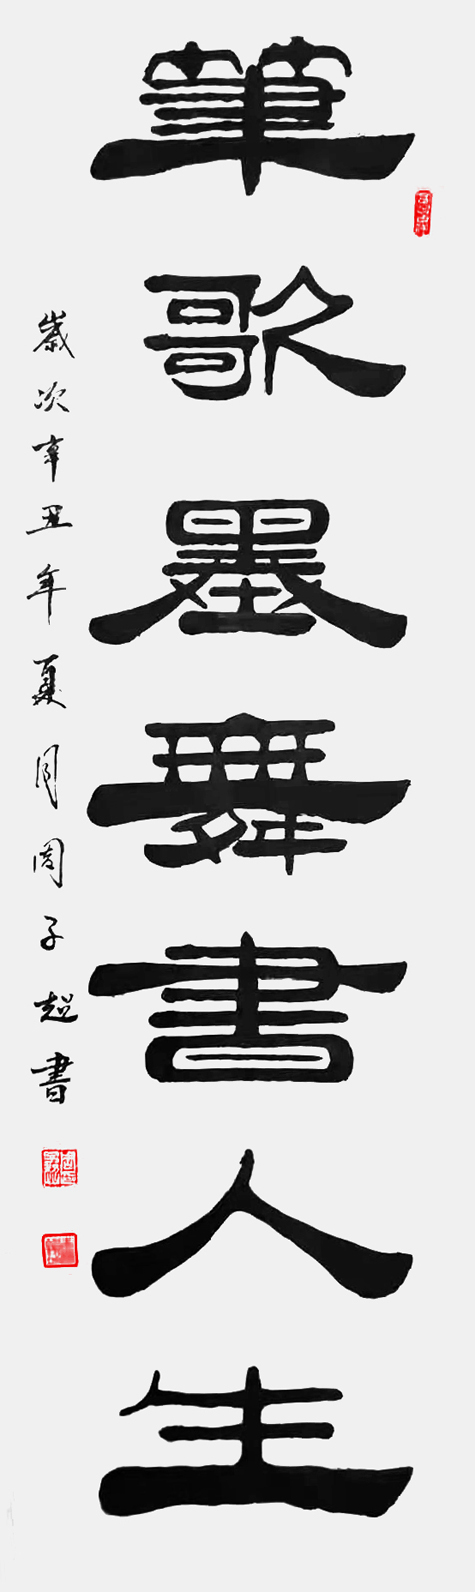 筆歌墨舞書人生
歲次辛丑年夏月周子超書